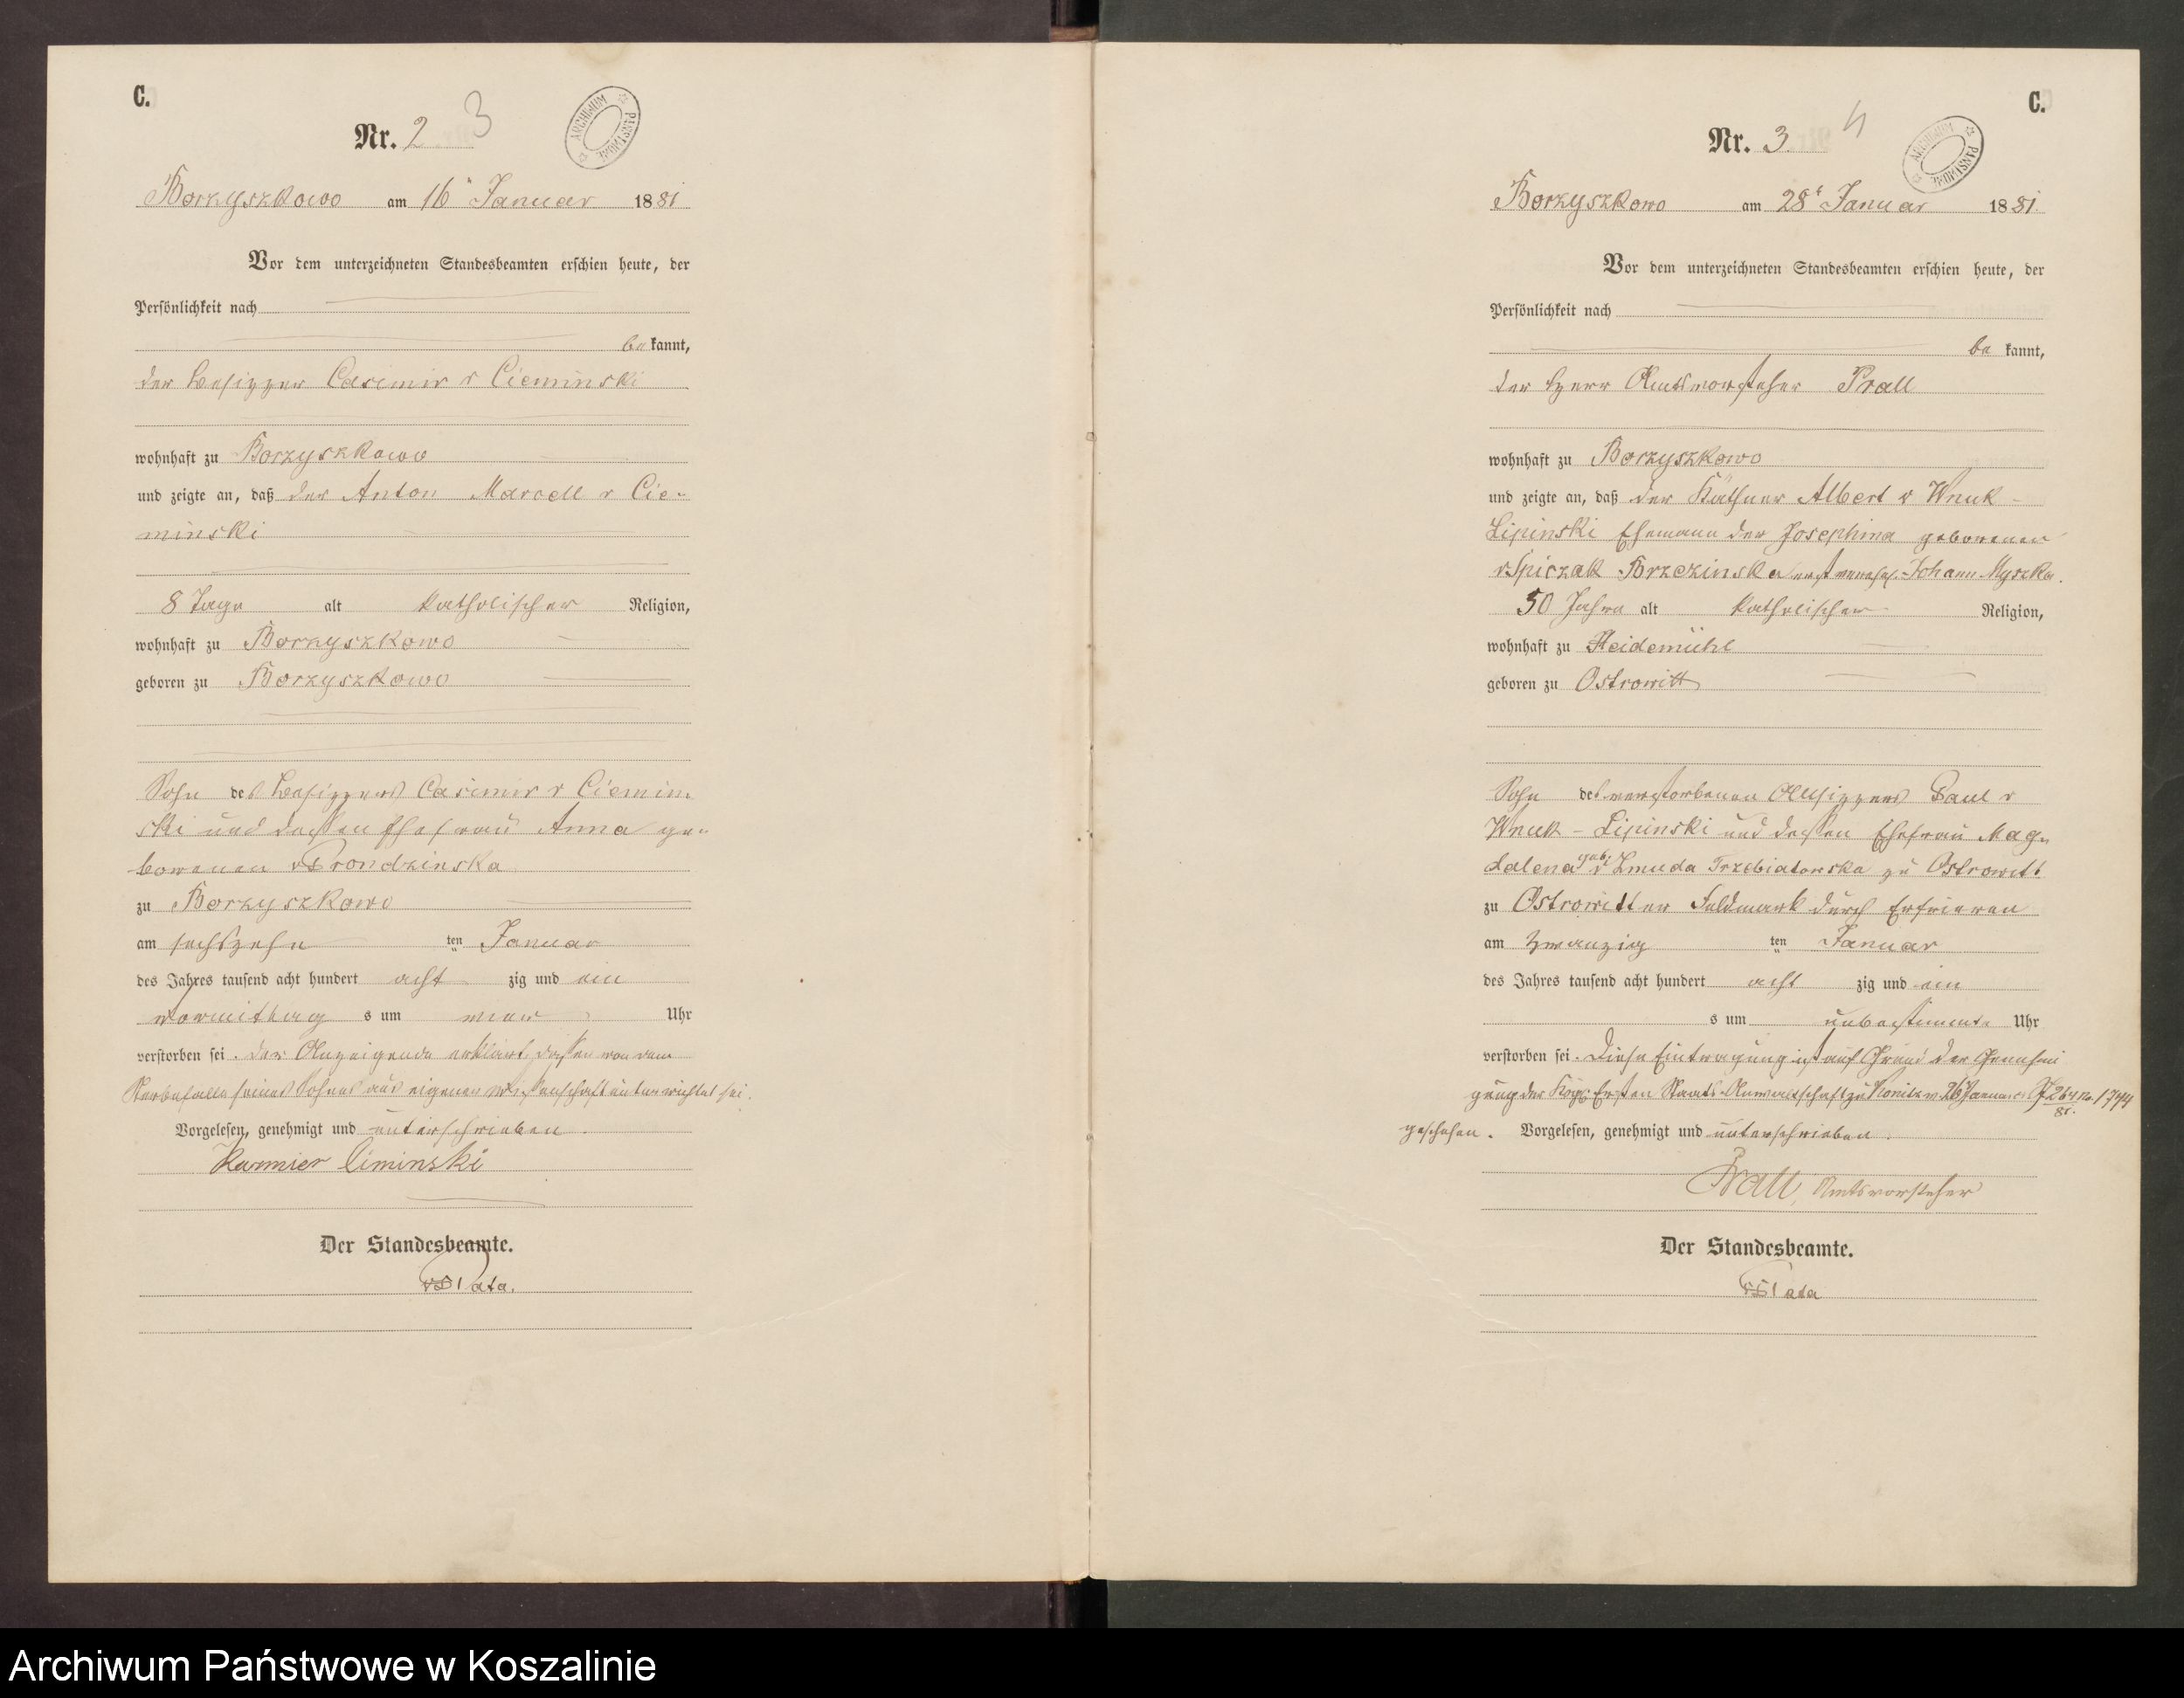 C.
Nr. 2 3
ARCHIWUM PAŃSTWOWE
Borzyszkowo am 16 Januar 1881
Vor dem unterzeichneten Standesbeamten erschien heute, der
Persönlichkeit nach
be kannt,
der Besitzer Casimir v Cieminski
wohnhaft zu Borzyszkowo
und zeigte an, daß der Anton Marcell v Cie-
minski
8 Tage alt katholischer Religion,
wohnhaft zu Borzyszkowo
geboren zu Borzyszkowo
Sohn des Besitzers Casimir v Ciemin-
ski und dessen Ehefrau Anna ge-
borenen v Prondzinska
zu Borzyszkowo
am sechszehn ten Januar
des Jahres tausend acht hundert acht zig und ein
vormittag s um Uhr
verstorben sei. Der Anzeigende erklärt, dassen von dem
Sterbefalle seines Sohnes aus eigener Wissenschaft unterrichtet sei.
Vorgelesen, genehmigt und unterschrieben.
Kazmier Ciminski
Der Standesbeamte.
C.
Nr. 3. 4
ARCHIWUM PAŃSTWOWE
Borzyszkowo am 28t Januar 1881.
Vor dem unterzeichneten Standesbeamten erschien heute, der
Persönlichkeit nach
be kannt,
der Herr Amtsvorsteher Prall
wohnhaft zu Borzyszkowo
und zeigte an, daß der Käthner Albert v Wnuk-
Lipinski Ehemann der Josephina geborenen
v Spiczak Brzezinska erst verehel. Johann Myszka.
50 Jahre alt katholischer Religion,
wohnhaft zu Heidemühl
geboren zu Ostrowitt
Sohn des verstorbenen Altsitzers Paul v
Wnuk - Lipinski und dessen Ehefrau Mag-
dalena geb. v Zmuda Trzebiatowska zu Ostrowitt
zu Ostrowitter Feldmark durch Erfrieren
am zwanzig ten Januar
des Jahres tausend acht hundert acht zig und ein
s um unbestimmte Uhr
verstorben sei. Diese Eintragung ist auf Grund der Genehmi
gung der Kögl Ersten Staats-Anwaltschaft zu Konitz v. 26 Januar
geschehen. Vorgelesen, genehmigt und unterschrieben.
Prall, Amtsvorsteher
Der Standesbeamte.
Archiwum Państwowe w Koszalinie